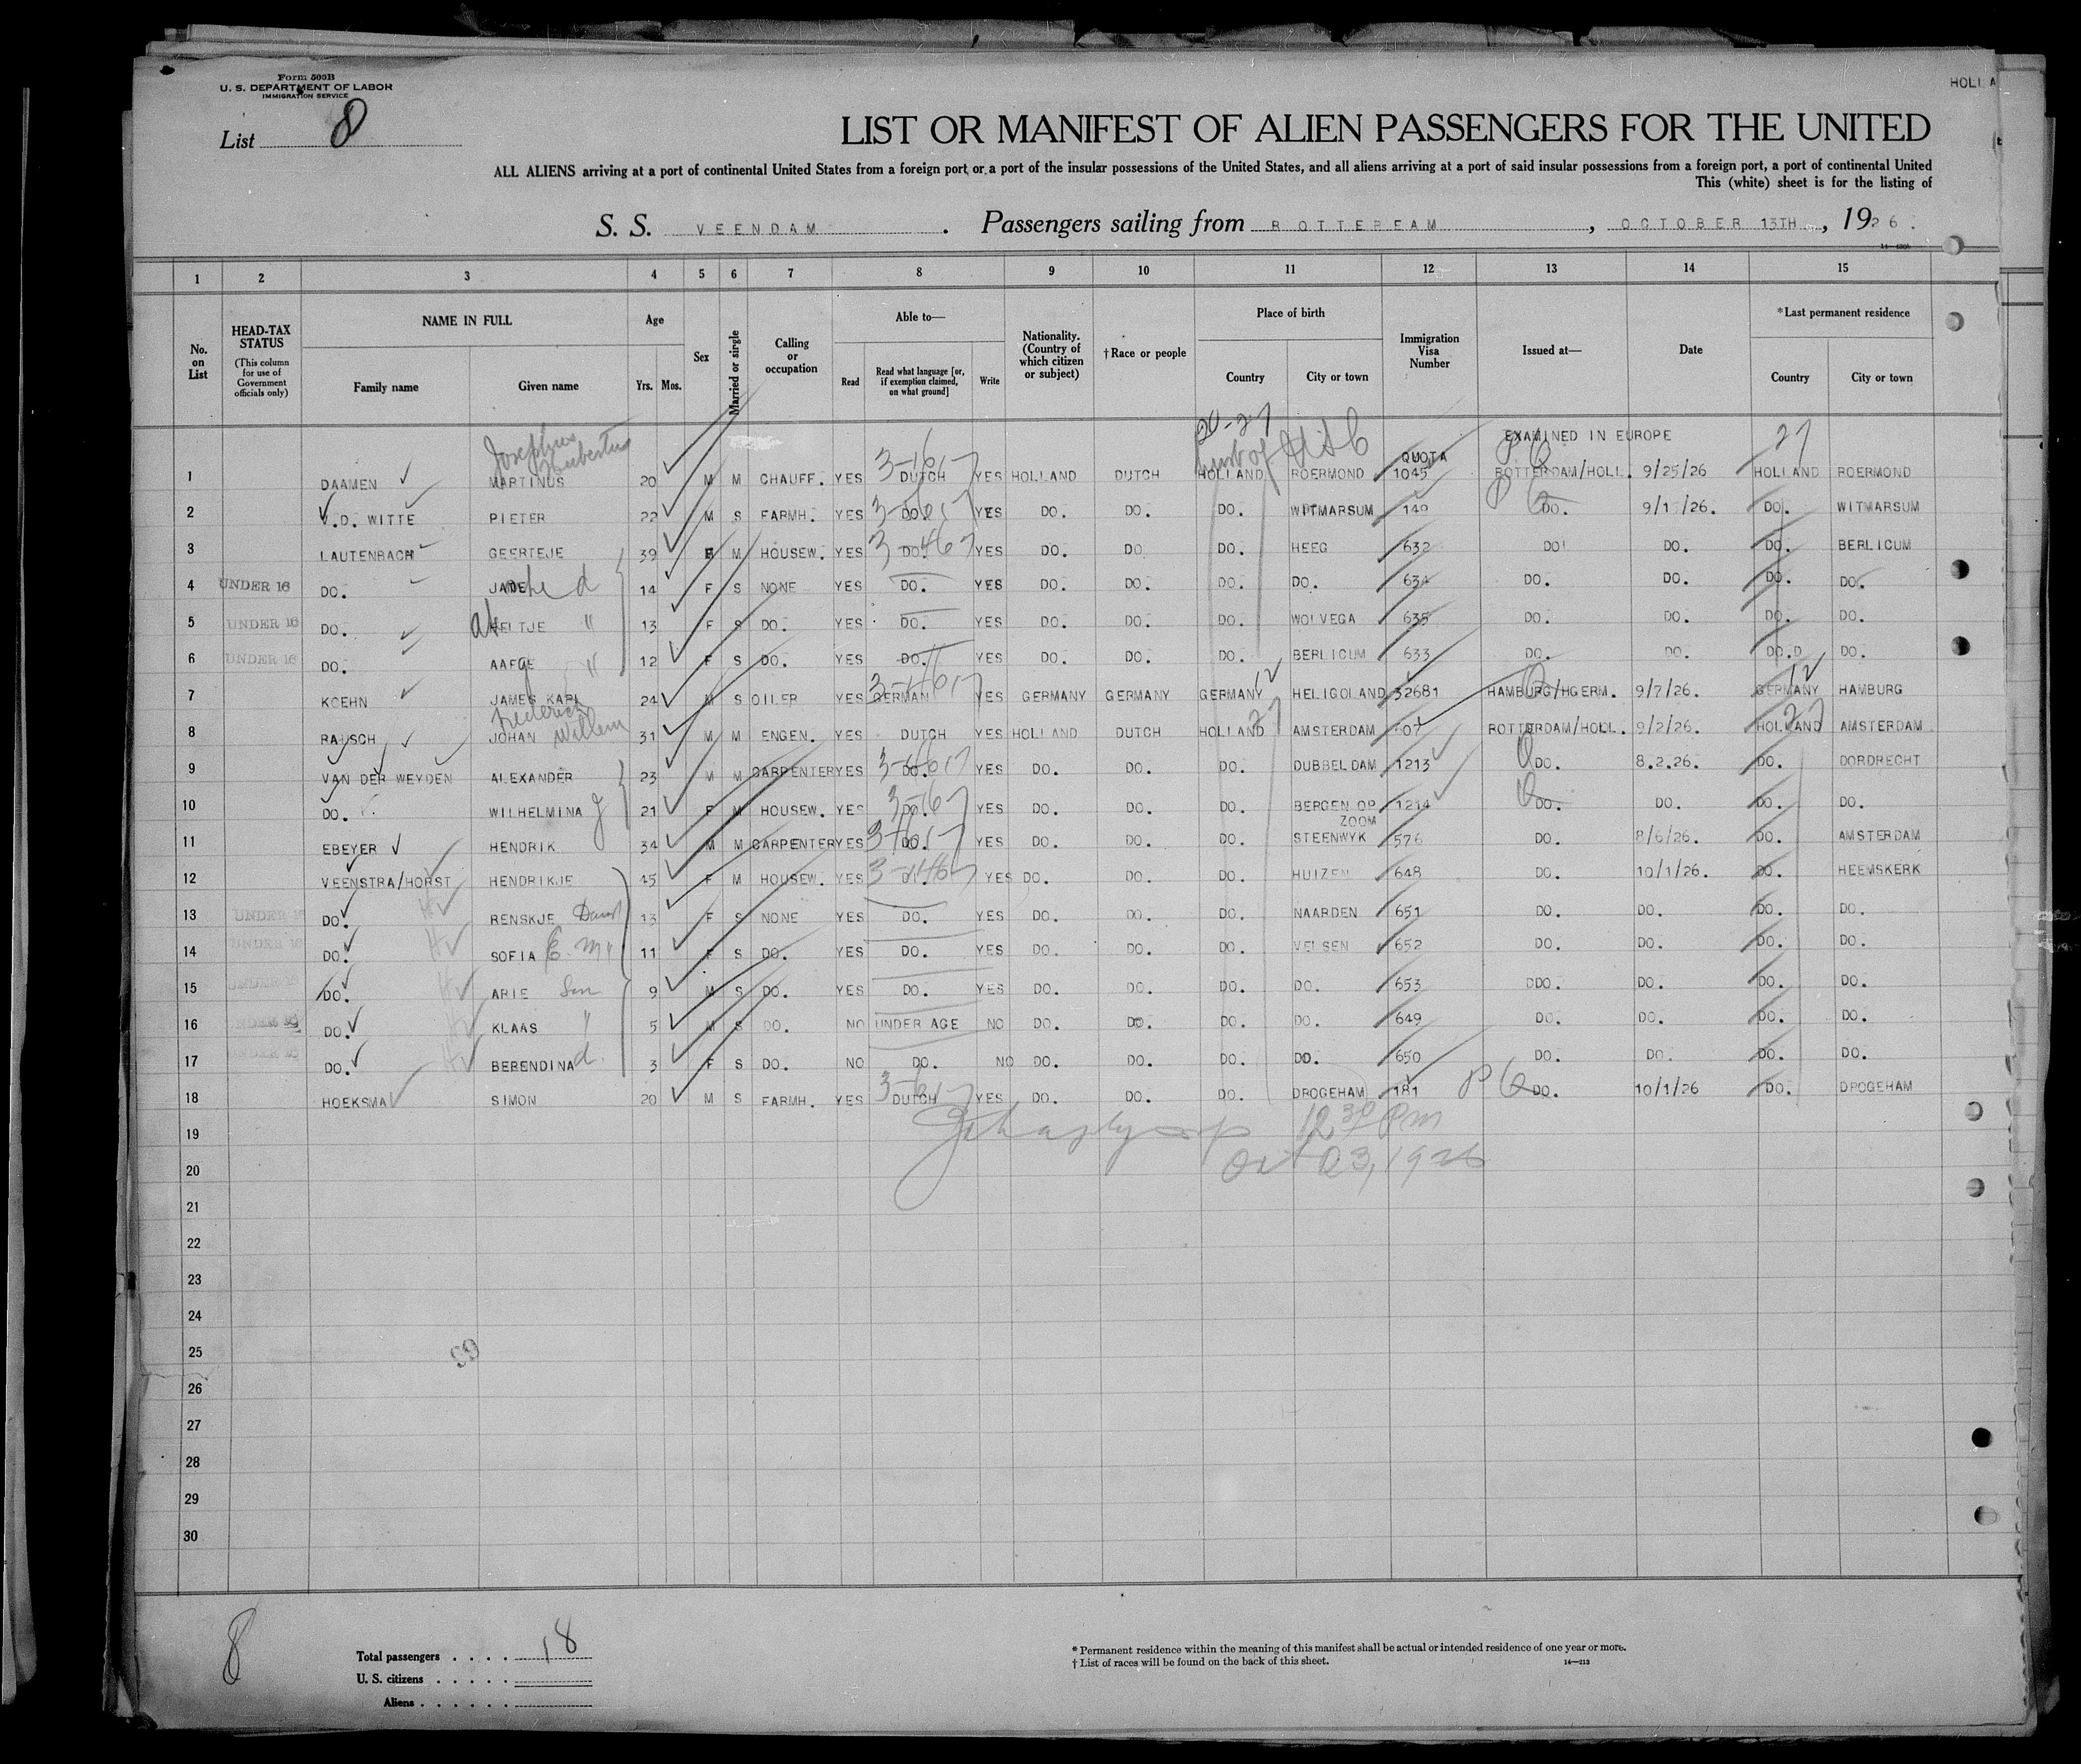 Form 500B
U. S. DEPARTMENT OF LABOR
IMMIGRATION SERVICE
HOLLA
List 8
LIST OR MANIFEST OF ALIEN PASSENGERS FOR THE UNITED
ALL ALIENS arriving at a port of continental United States from a foreign port or a port of the insular possessions of the United States, and all aliens arriving at a port of said insular possessions from a foreign port, a port of continental United
This (white) sheet is for the listing of
S. S. VEENDAM . Passengers sailing from , OCTOBER 13TH , 1926.
1 2 3 4 5 6 7 8 9 10 11 12 13 14 15
No. on List
HEAD-TAX STATUS
(This column for use of Government officials only)
NAME IN FULL
Family name Given name
Age
Yrs. Mos.
Sex
Married or single
Calling or occupation
Able to—
Read Read what language [or, if exemption claimed, on what ground] Write
Nationality. (Country of which citizen or subject)
†Race or people
Place of birth
Country City or town
Immigration Visa Number
Issued at—
Date
*Last permanent residence
Country City or town
20-27
27
EXAMINED IN EUROPE
QUOTA
Josephus Hubertus
1 DAAMEN MARTINUS 20 M M CHAUFF. YES DUTCH YES HOLLAND DUTCH HOLLAND ROERMOND 1045 ROTTERDAM/HOLL. 9/25/26 HOLLAND ROERMOND
2 V.D. WITTE PIETER 22 M S FARMH. YES DO. YES DO. DO. DO. WITMARSUM DO. 9/1 /26. DO. WITMARSUM
3 LAUTENBACH GEERTEJE 39 F M HOUSEW. YES DO. YES DO. DO. DO. HEEG 632 DO DO. DO. BERLICUM
4 UNDER 16 DO. d 14 F S NONE YES DO. YES DO. DO. DO. DO. 634 DO. DO. DO. DO.
5 UNDER 16 DO. " 13 F S DO. YES DO. YES DO. DO. DO. WOLVEGA 635 DO. DO. DO. DO.
6 UNDER 16 DO. " 12 F S DO. YES DO. YES DO. DO. DO. BERLICUM 633 DO. DO. DO.D DO.
7 KOEHN JAMES KARL 24 M S OILER YES GERMAN YES GERMANY GERMANY GERMANY HELIGOLAND 32681 HAMBURG/HGERM. 9/7/26. GERMANY HAMBURG
Frederick Willem
8 RAUSCH JOHAN 31 M M ENGEN. YES DUTCH YES HOLLAND DUTCH HOLLAND AMSTERDAM ROTTERDAM/HOLL. 9/2/26. HOLLAND AMSTERDAM
9 VAN DER WEYDEN ALEXANDER 23 M M CARPENTER YES DO. YES DO. DO. DO. DUBBELDAM 1213 DO. 8.2.26. DO. DORDRECHT
10 DO. WILHELMINA J 21 F M HOUSEW. YES DO. YES DO. DO. DO. BERGEN OP ZOOM 1214 DO. DO. DO. DO.
11 EBEYER HENDRIK 34 M M CARPENTER YES DO. YES DO. DO. DO. STEENWYK 576 DO. 8/6/26. DO. AMSTERDAM
12 VEENSTRA/HORST HENDRIKJE 45 F M HOUSEW. YES YES DO. DO. DO. HUIZEN 648 DO. 10/1/26. DO. HEEMSKERK
13 UNDER 16 DO. RENSKJE 13 F S NONE YES DO. YES DO. DO. DO. NAARDEN 651 DO. DO. DO. DO.
14 UNDER 16 DO. SOFIA 11 F S DO. YES DO. YES DO. DO. DO. VELSEN 652 DO. DO. DO. DO.
15 UNDER 16 DO. ARIE Son 9 M S DO. YES DO. YES DO. DO. DO. DO. 653 DDO. DO. DO. DO.
16 UNDER 16 DO. KLAAS " 5 M S DO. NO UNDER AGE NO DO. DO. DO. DO. 649 DO. DO. DO. DO.
17 UNDER 16 DO. BERENDINA d. 3 F S DO. NO DO. NO DO. DO. DO. DO. 650 DO. DO. DO. DO.
18 HOEKSMA SIMON 20 M S FARMH. YES DUTCH YES DO. DO. DO. DROGEHAM 181 DO. 10/1/26 DO. DROGEHAM
19 12 30 PM
20 Oct 23, 1926
21
22
23
24
25
26
27
28
29
30
8
Total passengers . . . . 18
U. S. citizens . . . . .
Aliens . . . . . .
* Permanent residence within the meaning of this manifest shall be actual or intended residence of one year or more.
† List of races will be found on the back of this sheet.
14—213